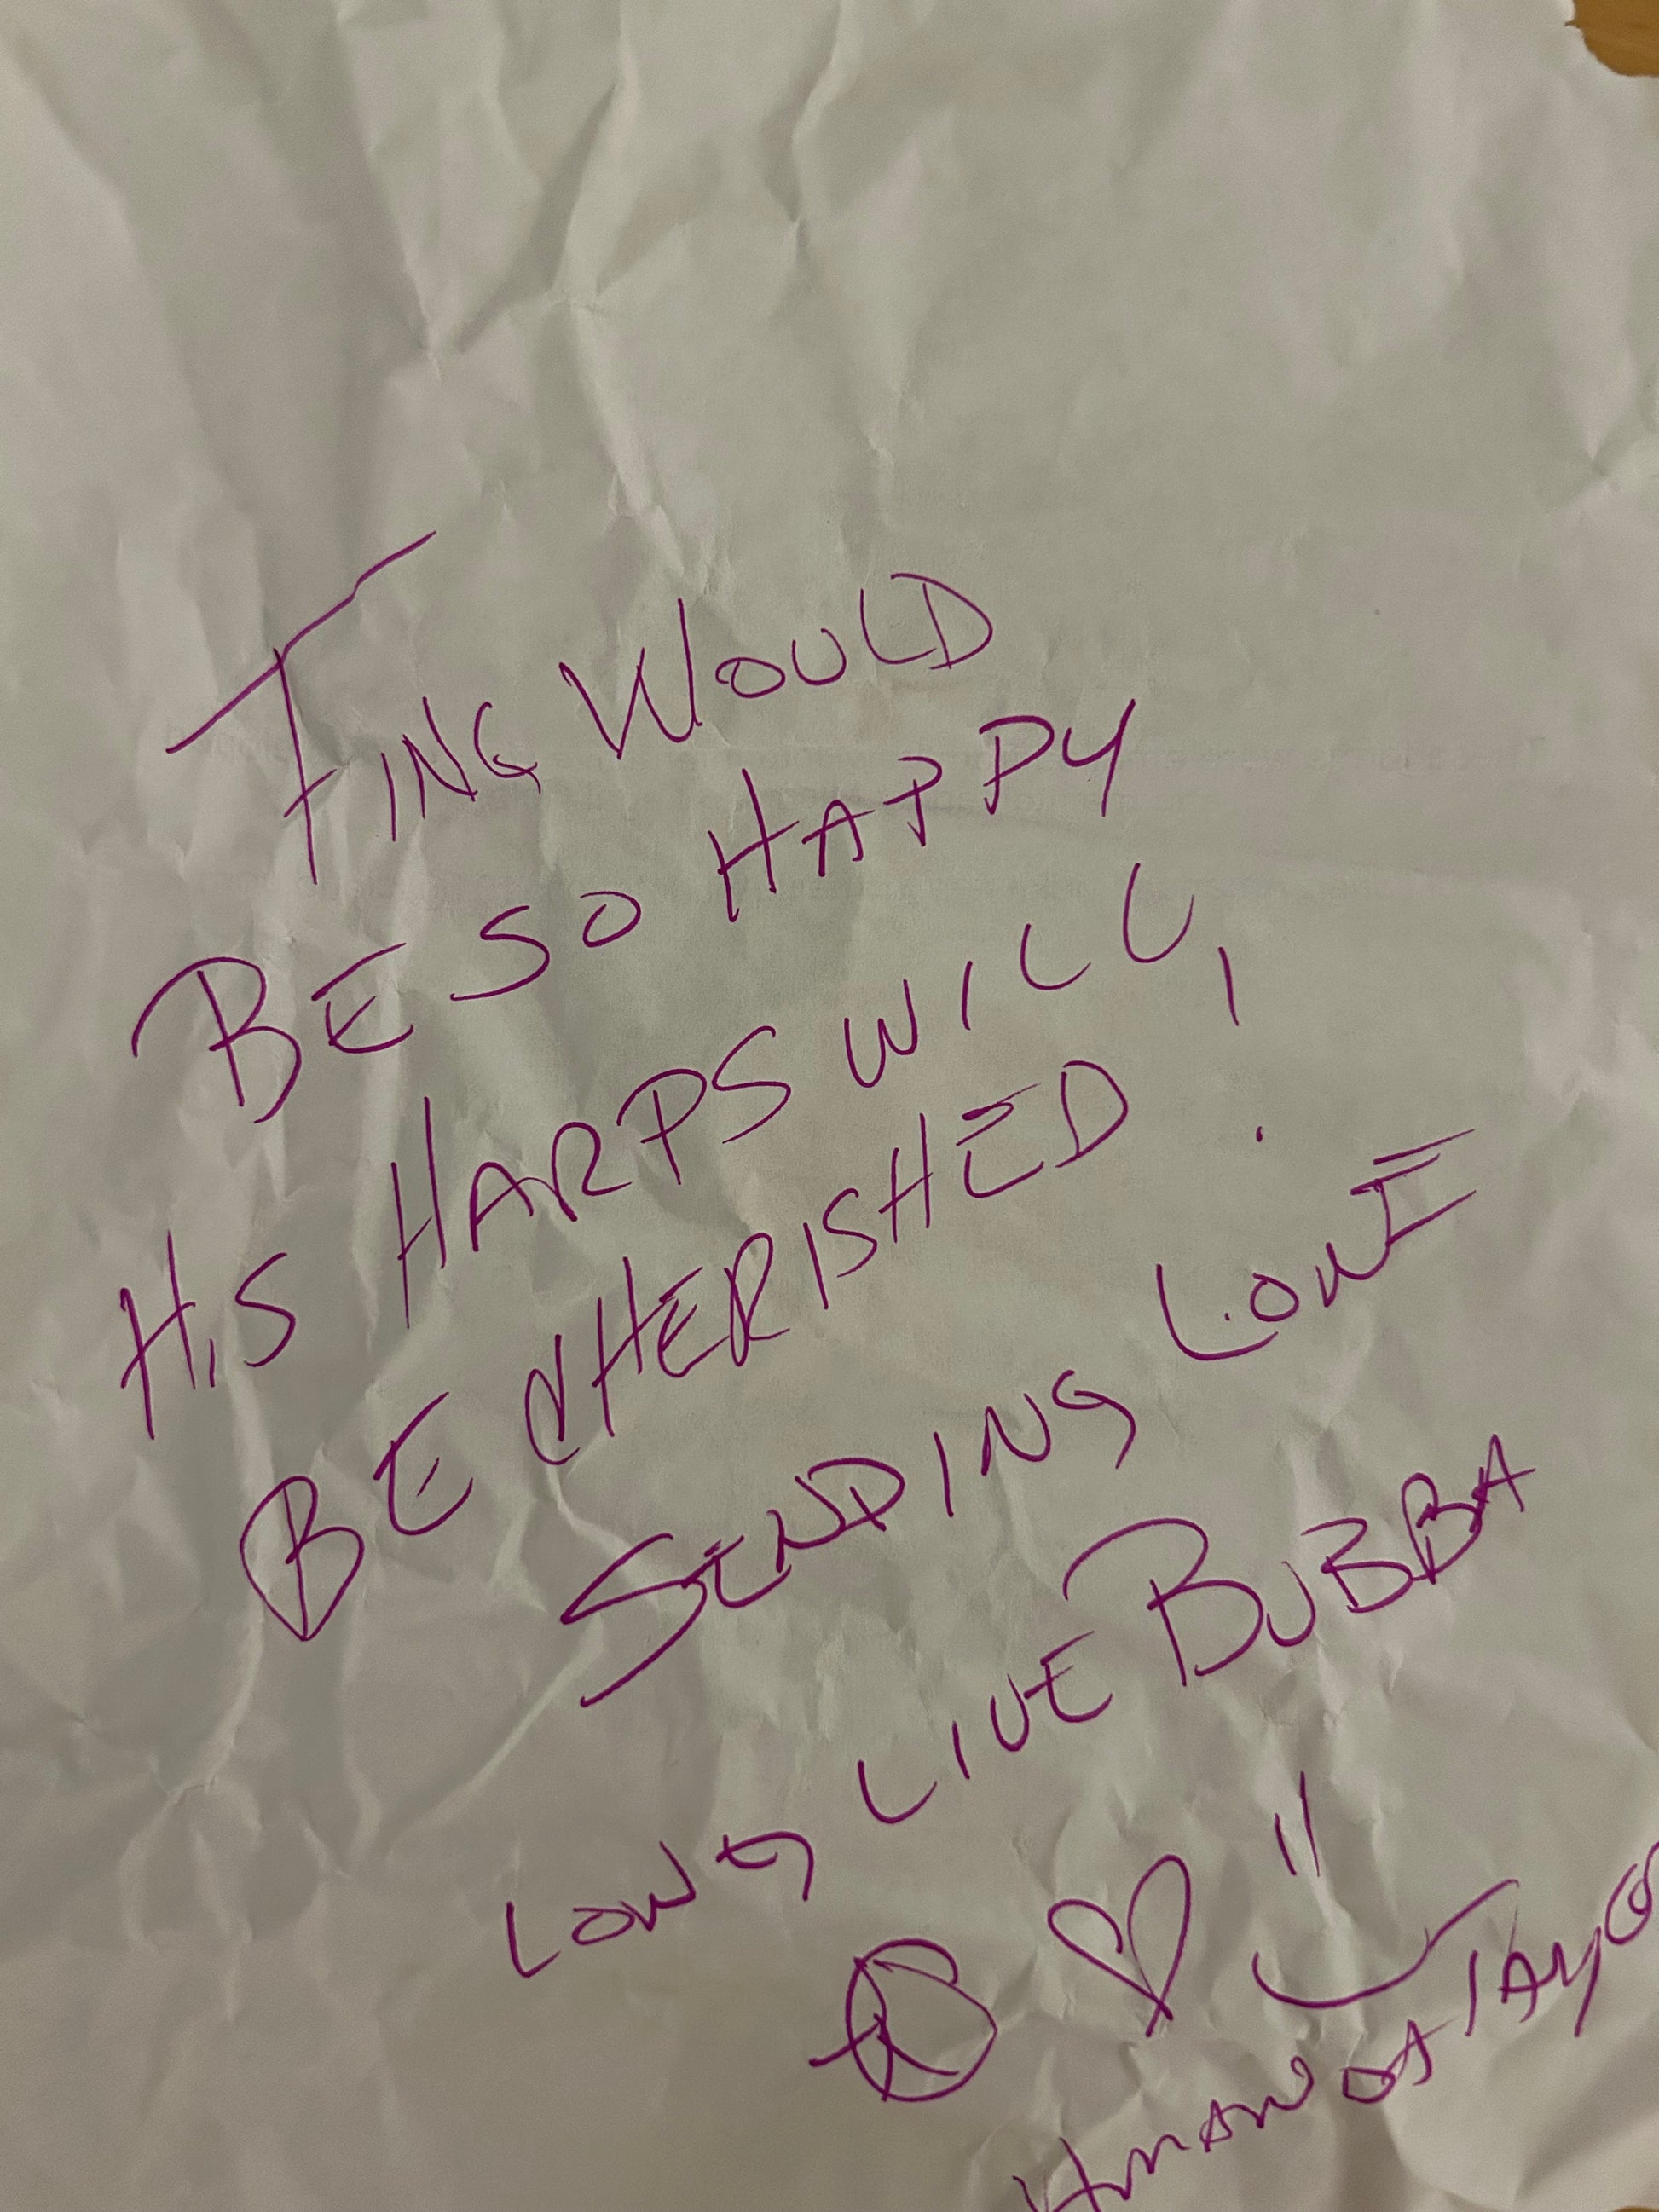 FING WOULD
BE SO HAPPY
HIS HARPS WILL
BE CHERISHED!
SENDING LOVE
LONG LIVE BUBBA